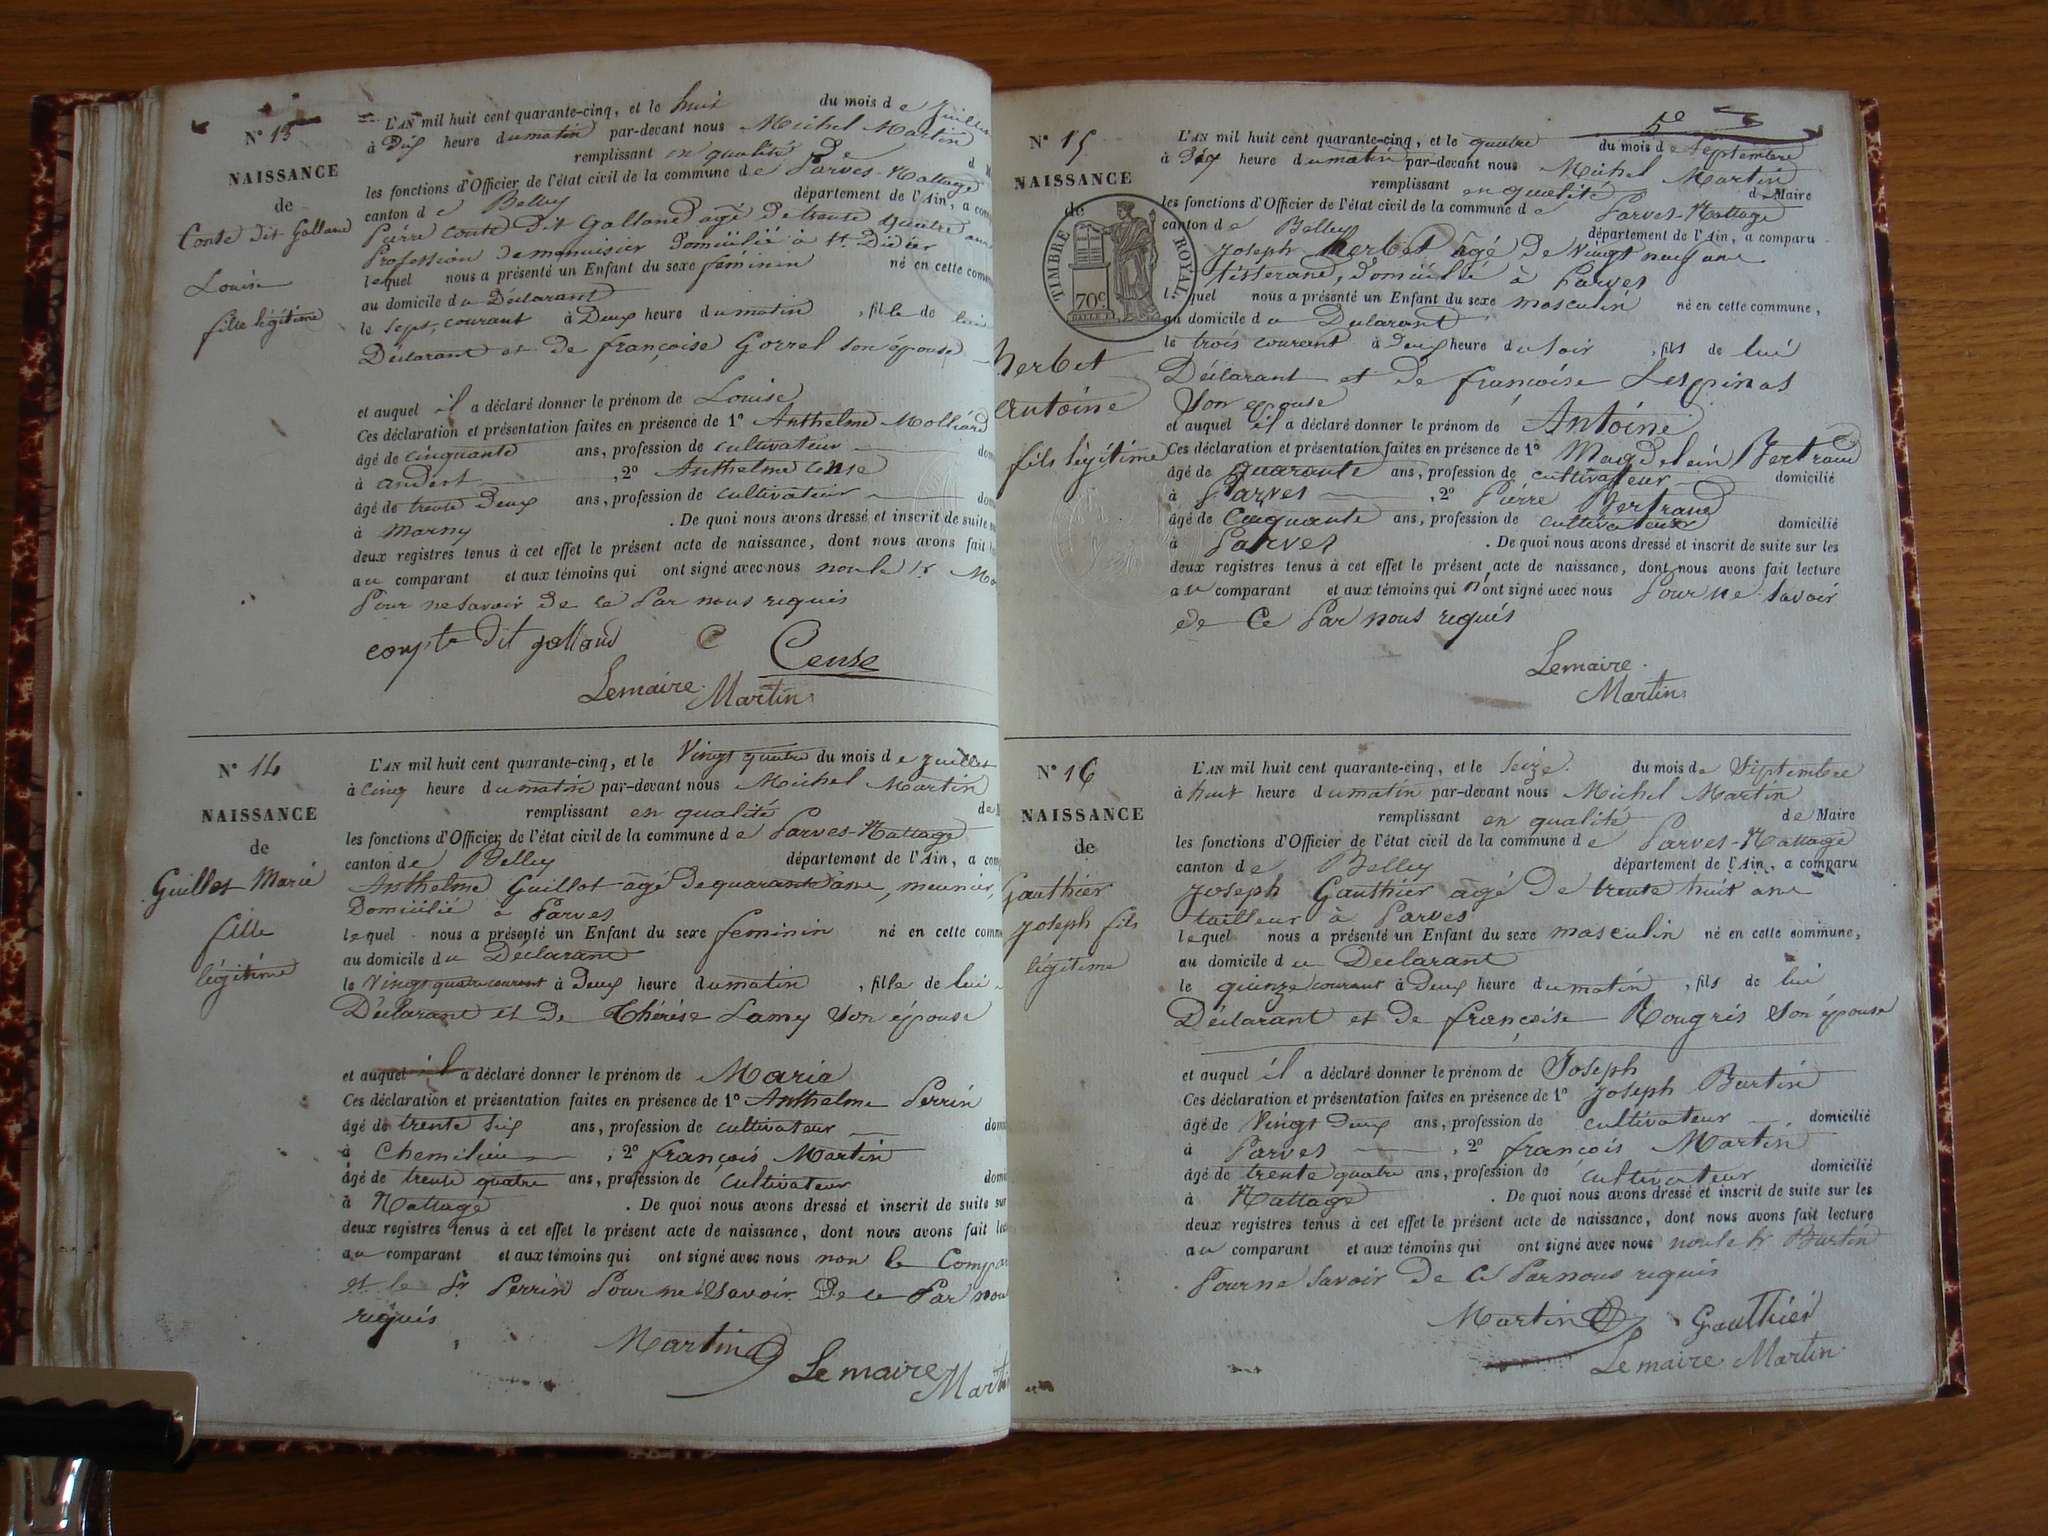 N° 13
NAISSANCE
de
Conte dit Galland
Louise
fille légitime
L'AN mil huit cent quarante-cinq, et le huit du mois de Juillet
à Dix heure du matin par-devant nous Michel Martin
remplissant en qualité de
les fonctions d'Officier de l'état civil de la commune de Parves-Nattage
canton de Belley département de l'Ain, a com
Pierre Conte dit Galland agé de trente quatre ans
Profession de menuisier domicilié à St. Didier
lequel nous a présenté un Enfant du sexe féminin né en cette comm
au domicile du Déclarant
le sept courant à Deux heure du matin, fille de lui
Déclarant et de françoise Gorrel son épouse
et auquel il a déclaré donner le prénom de Louise
Ces déclaration et présentation faites en présence de 1° Anthelme Molliard
âgé de cinquante ans, profession de cultivateur dom
à andert, 2° Anthelme Cense
âgé de trente Deux ans, profession de cultivateur dom
à Marny. De quoi nous avons dressé et inscrit de suite su
deux registres tenus à cet effet le présent acte de naissance, dont nous avons fait l
au comparant et aux témoins qui ont signé avec nous non le Sr. Mo
Pour ne savoir de ce Par nous requis
compte dit galland C Cense
Lemaire Martin
N° 14
NAISSANCE
de
Guillot Marie
fille
légitime
L'AN mil huit cent quarante-cinq, et le Vingt quatre du mois de juillet
à cinq heure du matin par-devant nous Michel Martin
remplissant en qualité de M
les fonctions d'Officier de l'état civil de la commune de Parves-Nattage
canton de Belley département de l'Ain, a com
Anthelme Guillot agé de quarante ans, meunier,
Domicilié à Parves
lequel nous a présenté un Enfant du sexe feminin né en cette comm
au domicile du Déclarant
le Vingt quatre courant à Deux heure du matin, fille de lui
Déclarant et de Thérèse Lamy Son épouse
et auquel il a déclaré donner le prénom de Maria
Ces déclaration et présentation faites en présence de 1° Anthelme Perrin
âgé de trente six ans, profession de cultivateur dom
à Chemilieu, 2° françois Martin
âgé de trente quatre ans, profession de Cultivateur dom
à Nattage. De quoi nous avons dressé et inscrit de suite sur
deux registres tenus à cet effet le présent acte de naissance, dont nous avons fait lec
au comparant et aux témoins qui ont signé avec nous non le Compa
et le Sr Perrin Pour ne Savoir De ce Par nou
requis
Martin Lemaire Marti
5e
N° 15
NAISSANCE
de
TIMBRE ROYAL
70c
herbet
antoine
fils légitime
L'AN mil huit cent quarante-cinq, et le quatre du mois de Septembre
à Dix heure du matin par-devant nous Michel Martin
remplissant en qualité de Maire
les fonctions d'Officier de l'état civil de la commune de Parves-Nattage
canton de Belley département de l'Ain, a comparu
joseph herbet âgé de vingt neuf ans
tisserand, domicilié à Parves
lequel nous a présenté un Enfant du sexe masculin né en cette commune,
au domicile du Declarant
le trois courant à deux heure du soir, fils de lui
Déclarant et de françoise Lespinas
Son epouse
et auquel il a déclaré donner le prénom de Antoine
Ces déclaration et présentation faites en présence de 1° Magdelein Bertrand
âgé de quarante ans, profession de cultivateur domicilié
à Parves, 2° Pierre Bertrand
âgé de Cinquante ans, profession de cultivateur domicilié
à Parves. De quoi nous avons dressé et inscrit de suite sur les
deux registres tenus à cet effet le présent acte de naissance, dont nous avons fait lecture
au comparant et aux témoins qui n'ont signé avec nous Pour ne savoir
de Ce Par nous requis
Lemaire
Martin
N° 16
NAISSANCE
de
Gauthier
joseph fils
légitime
L'AN mil huit cent quarante-cinq, et le seize du mois de Septembre
à huit heure du matin par-devant nous Michel Martin
remplissant en qualité de Maire
les fonctions d'Officier de l'état civil de la commune de Parves-Nattage
canton de Belley département de l'Ain, a comparu
joseph Gauthier agé de trente huit ans
tailleur à Parves
lequel nous a présenté un Enfant du sexe masculin né en cette commune,
au domicile du Declarant
le quinze courant à Deux heure du matin, fils de lui
Déclarant et de françoise Rougris Son épouse
et auquel il a déclaré donner le prénom de Joseph
Ces déclaration et présentation faites en présence de 1° joseph Burtin
âgé de Vingt deux ans, profession de cultivateur domicilié
à Parves, 2° françois Martin
âgé de trente quatre ans, profession de cultivateur domicilié
à Nattage. De quoi nous avons dressé et inscrit de suite sur les
deux registres tenus à cet effet le présent acte de naissance, dont nous avons fait lecture
au comparant et aux témoins qui ont signé avec nous non le Sr Burtin
Pour ne savoir de ce Par nous requis
Martin Gauthier
Lemaire Martin